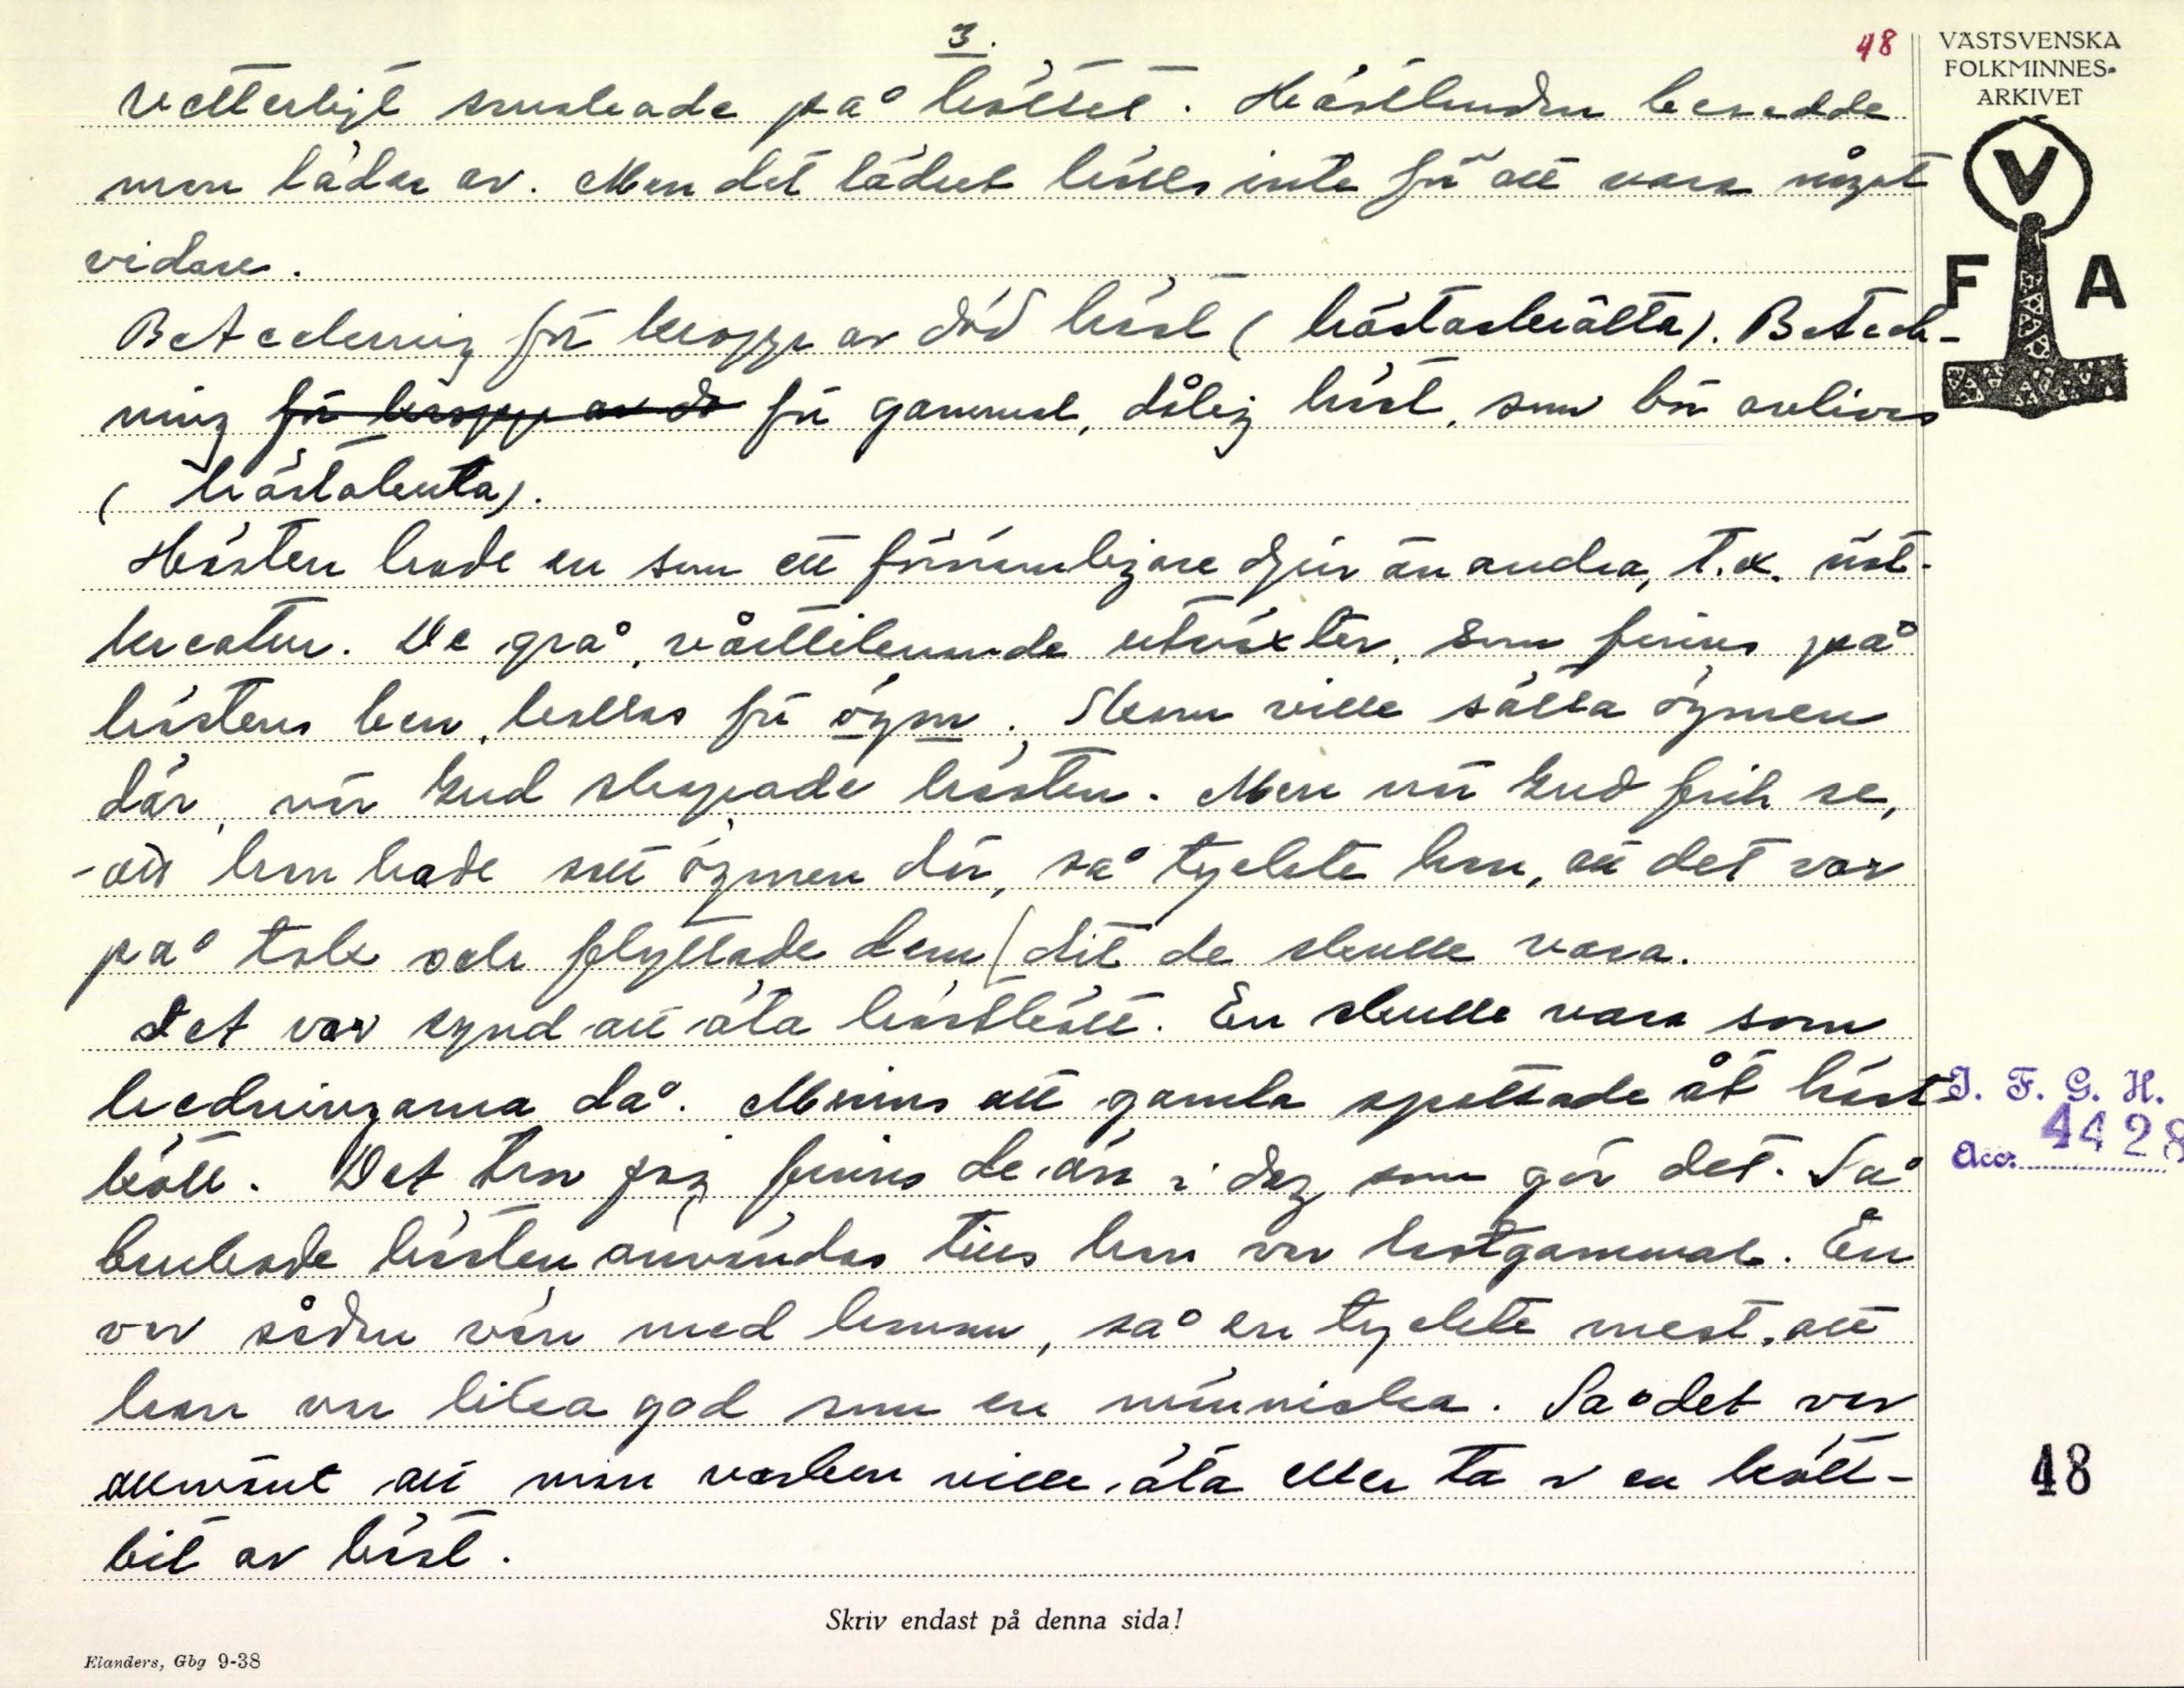 3.
48
VÄSTSVENSKA
FOLKMINNES-
ARKIVET
V
F A
vetterligt smakade på köttet. Hästhuden beredde
man läder av. Men det lädret hålls inte för att vara något
vidare.
Beteckning för kropp av död häst (hästaskrälta). Beteck-
ning för kropp av dö för gammal, dålig häst, som bör avlivas
(hästakuta).
Hästen hade en som ett förnämligare djur än andra, t.ex. nöt-
kreatur. De grå, vårtliknande utväxter, som finns på
hästens ben, kallas för ögon. Skam ville sätta ögonen
där, när Gud skapade hästen. Men när Gud fick se,
- att han hade satt ögonen där, så tyckte han, att det var
på tok och flyttade dem dit de skulle vara.
Det var synd att äta hästkött. En skulle vara som
hedningarna då. Minns att gamla spottade åt häst
kött. Det tror jag finns de än i dag som gör det. Så
brukade hästen användas tills han var lastgammal. En
var sådan vän med honom, så en tyckte mest, att
han var lika god som en människa. Så det var
allmänt att man varken ville äta eller ta i en kött-
bit av häst.
I. F. G. H.
Acc. 4428
48
Skriv endast på denna sida!
Elanders, Gbg 9-38